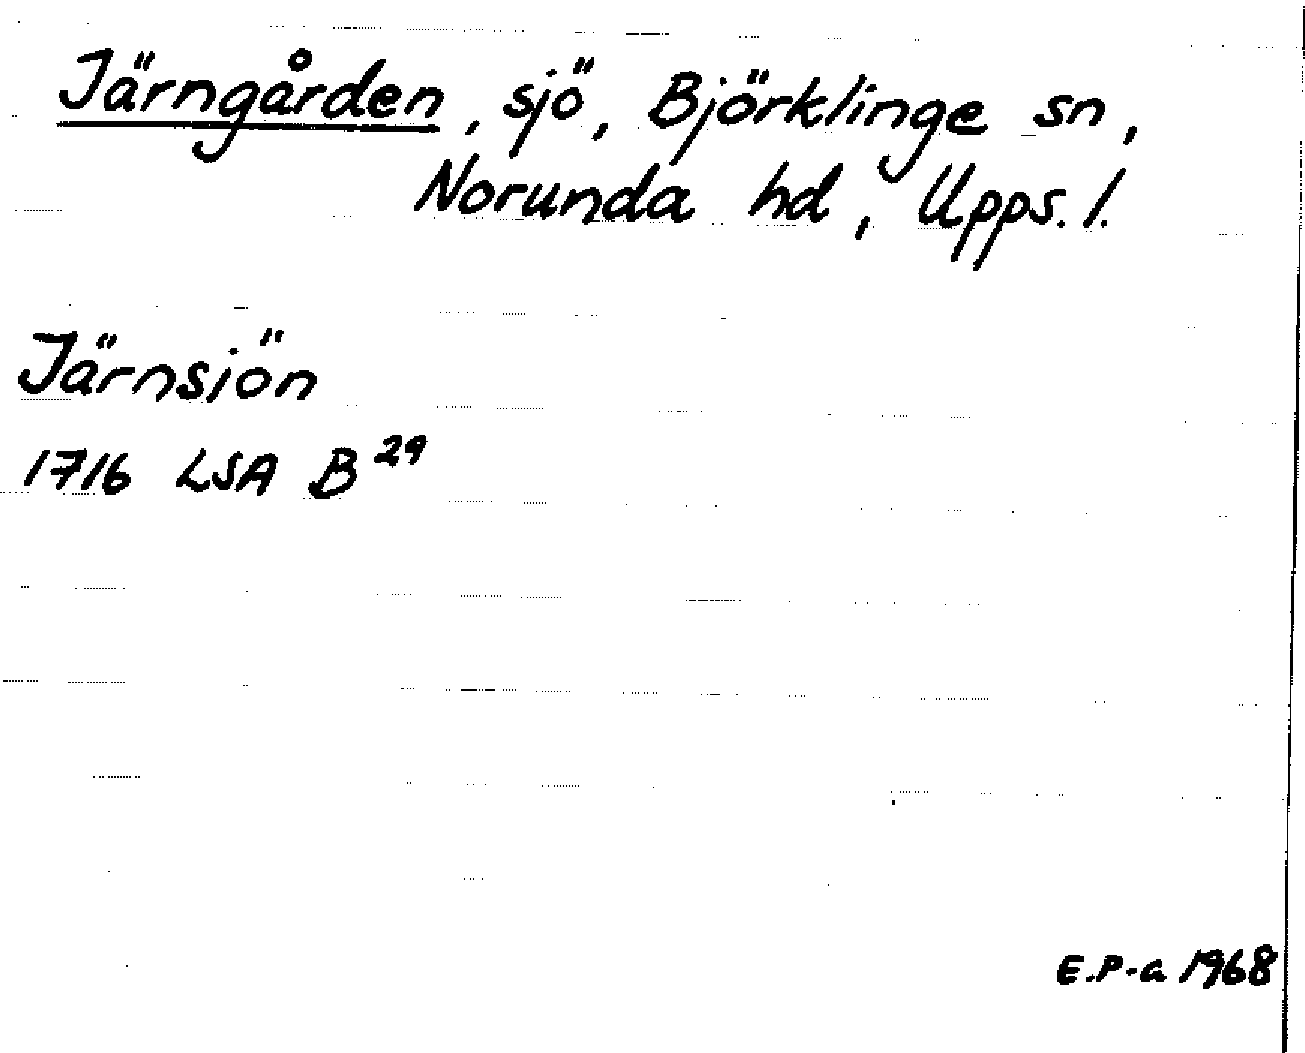 Järngården, sjö, Björklinge sn,
Norunda hd, Upps. l.
Järnsjön
1716 LSA B²⁹
E.P-a 1968